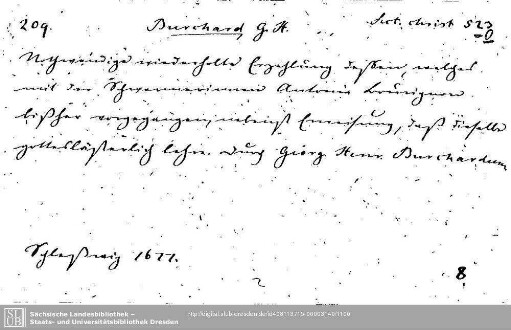 209. Burchard, G. H. Sect. christ 523
0
Nothwendige wiederholte Erzehlung deßen, welches
mit der Schwermerinnen Antonia Bourignon
bißher vorgegangen, nebenst Erweisung, daß dieselbe
gotteslästerlich lehre. Durch Georg Henr. Burchardum
Schleßwig 1677.
8
Sächsische Landesbibliothek –
Staats- und Universitätsbibliothek Dresden